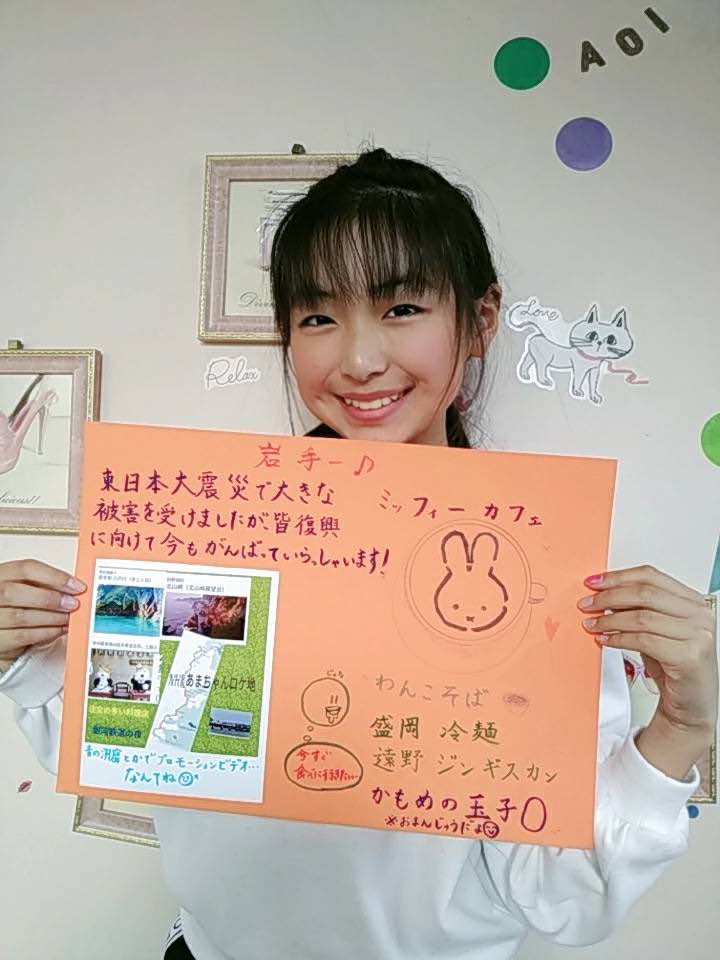 AOI
Love
Relax
岩手ー♪
東日本大震災で大きな
被害を受けましたが、皆復興
に向けて今もがんばっていらっしゃいます!
ミッフィー カフェ
北山崎(北山崎展望台)
NHKあまちゃんロケ地
注文の多い料理店
銀河鉄道の夜
青の洞窟とかでプロモーションビデオ…
なんてね
わんこそば
盛岡 冷麺
遠野 ジンギスカン
かもめの玉子
※おまんじゅうだよ
今すぐ
食べに行きたい…